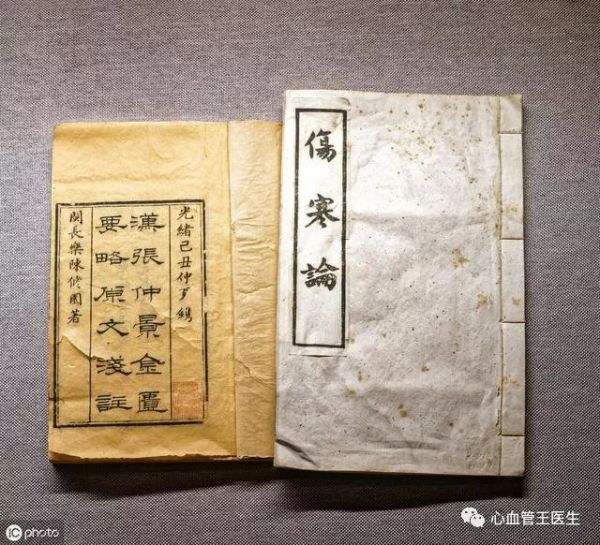 傷寒論
光緒己丑仲鐫
漢張仲景金匱
要略原文淺註
閩長樂陳修園著
iC photo
心血管王医生